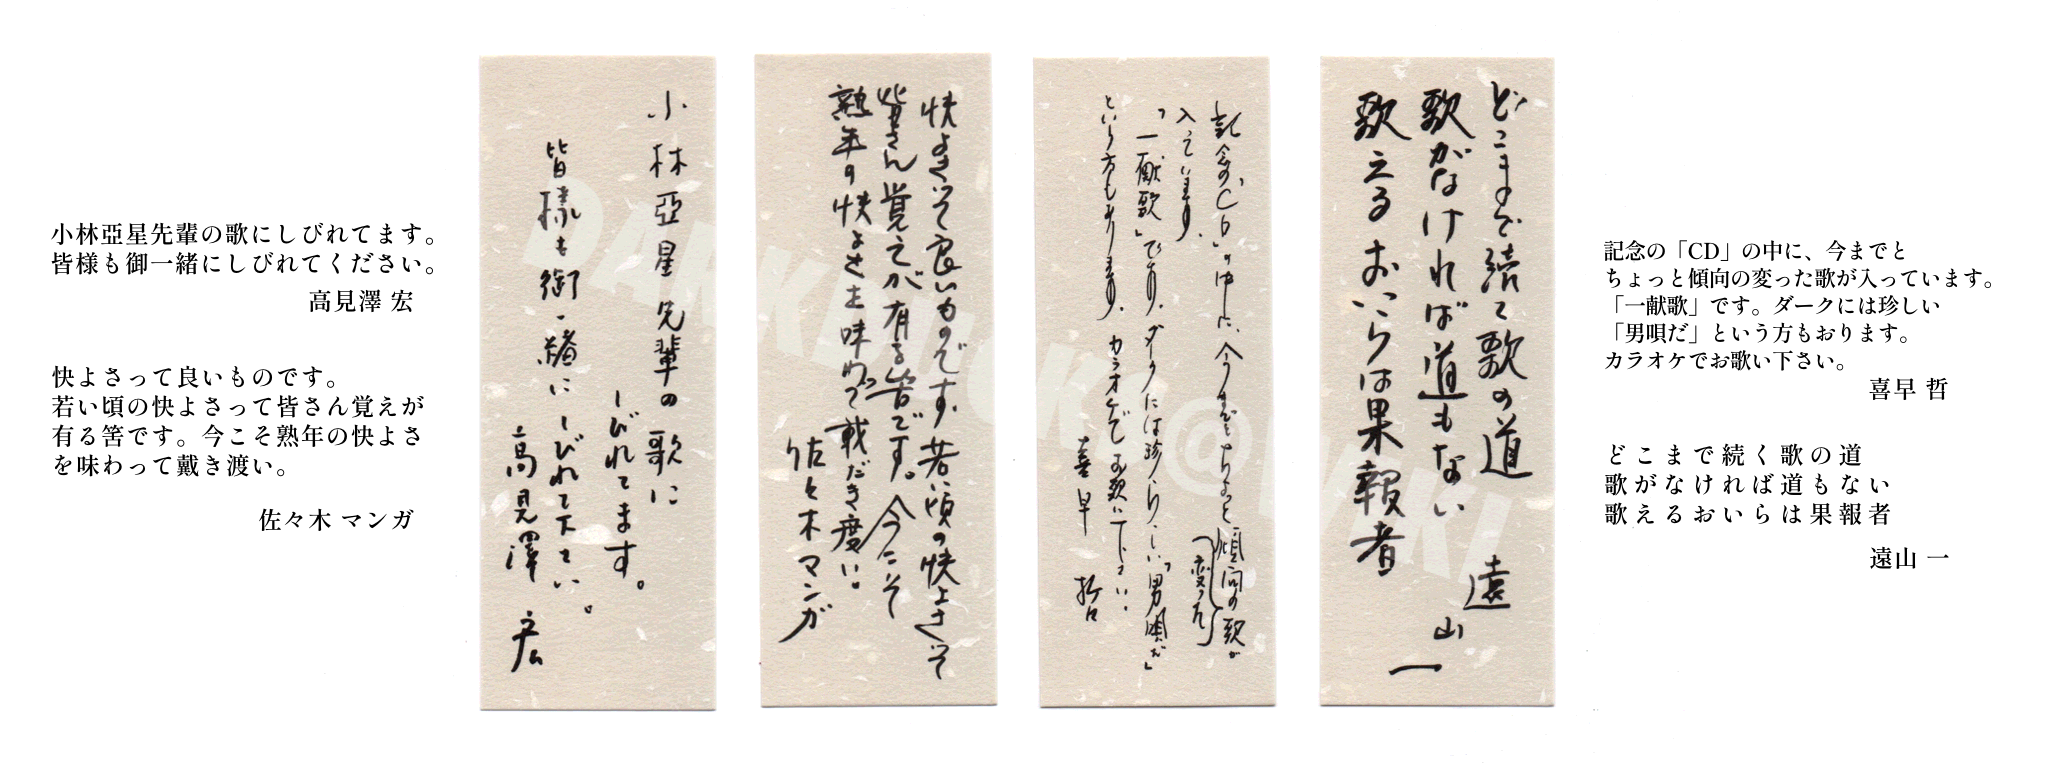 小林亞星先輩の歌にしびれてます。
皆様も御一緒にしびれてください。
高見澤 宏
快よさって良いものです。
若い頃の快よさって皆さん覚えが
有る筈です。今こそ熟年の快よさ
を味わって戴き渡い。
佐々木 マンガ
小林亞星先輩の歌に
しびれてます。
皆様も御一緒にしびれて下さい。
高見澤 宏
快よさって良いものです。若い頃の快よさって
皆さん覚えが有る筈です。今こそ
熟年の快よさを味わって戴だき度い。
佐々木マンガ
記念の「CD」の中に、今までとちょっと傾向の変った歌が
入っています。
「一献歌」です。ダークには珍らしい「男唄だ」
という方もおります。カラオケでお歌い下さい。
喜早 哲
どこまで続く歌の道
歌がなければ道もない
歌えるおいらは果報者
遠山 一
記念の「CD」の中に、今までと
ちょっと傾向の変った歌が入っています。
「一献歌」です。ダークには珍しい
「男唄だ」という方もおります。
カラオケでお歌い下さい。
喜早 哲
どこまで続く歌の道
歌がなければ道もない
歌えるおいらは果報者
遠山 一